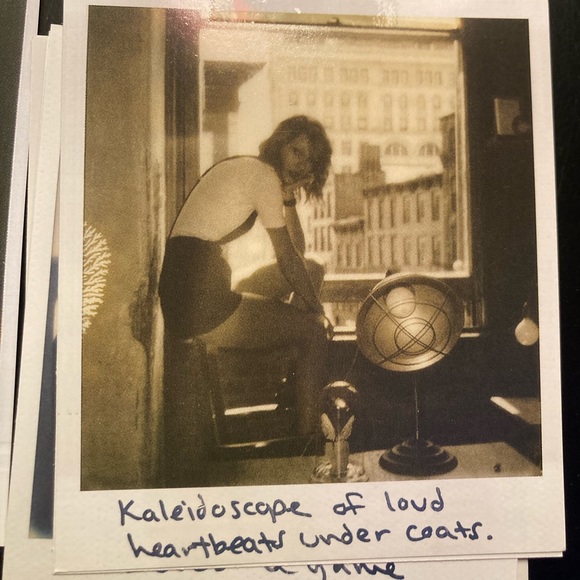 Kaleidoscope of loud
heartbeats under coats.
a game